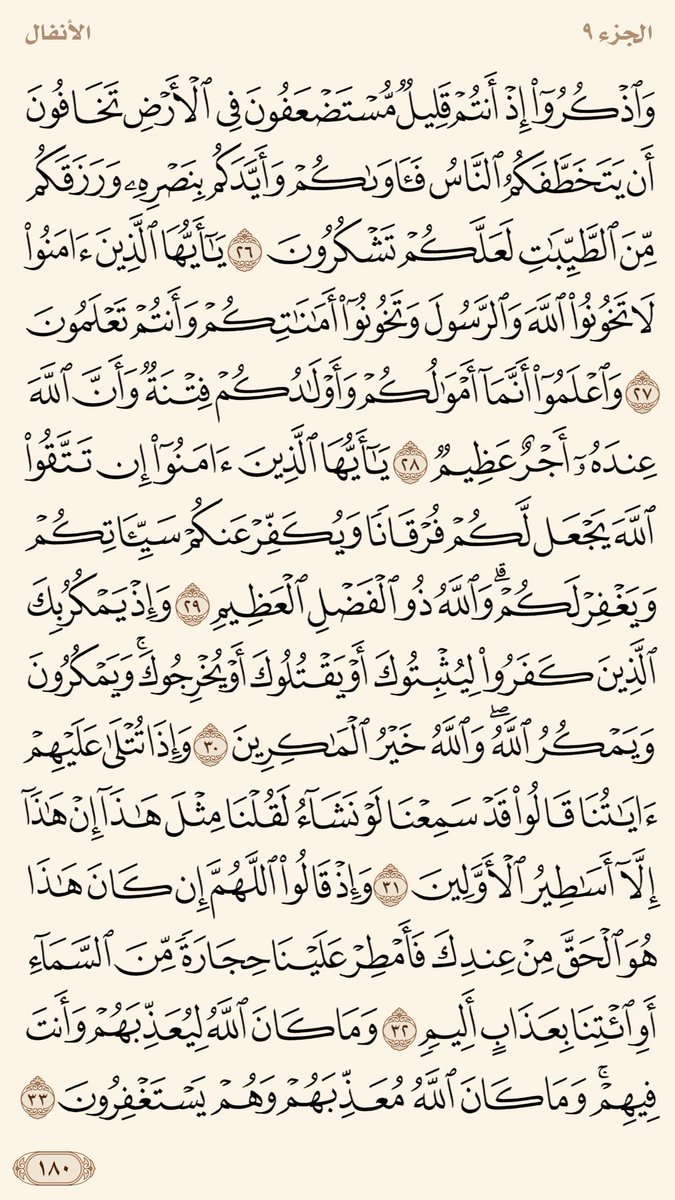 الجزء ٩ الأنفال
وَٱذْكُرُوٓا۟ إِذْ أَنتُمْ قَلِيلٌ مُّسْتَضْعَفُونَ فِى ٱلْأَرْضِ تَخَافُونَ
أَن يَتَخَطَّفَكُمُ ٱلنَّاسُ فَـَٔاوَىٰكُمْ وَأَيَّدَكُم بِنَصْرِهِۦ وَرَزَقَكُم
مِّنَ ٱلطَّيِّبَـٰتِ لَعَلَّكُمْ تَشْكُرُونَ ٢٦ يَـٰٓأَيُّهَا ٱلَّذِينَ ءَامَنُوا۟
لَا تَخُونُوا۟ ٱللَّهَ وَٱلرَّسُولَ وَتَخُونُوٓا۟ أَمَـٰنَـٰتِكُمْ وَأَنتُمْ تَعْلَمُونَ
٢٧ وَٱعْلَمُوٓا۟ أَنَّمَآ أَمْوَٰلُكُمْ وَأَوْلَـٰدُكُمْ فِتْنَةٌ وَأَنَّ ٱللَّهَ
عِندَهُۥٓ أَجْرٌ عَظِيمٌ ٢٨ يَـٰٓأَيُّهَا ٱلَّذِينَ ءَامَنُوٓا۟ إِن تَتَّقُوا۟
ٱللَّهَ يَجْعَل لَّكُمْ فُرْقَانًا وَيُكَفِّرْ عَنكُمْ سَيِّـَٔاتِكُمْ
وَيَغْفِرْ لَكُمْ ۗ وَٱللَّهُ ذُو ٱلْفَضْلِ ٱلْعَظِيمِ ٢٩ وَإِذْ يَمْكُرُ بِكَ
ٱلَّذِينَ كَفَرُوا۟ لِيُثْبِتُوكَ أَوْ يَقْتُلُوكَ أَوْ يُخْرِجُوكَ ۚ وَيَمْكُرُونَ
وَيَمْكُرُ ٱللَّهُ ۖ وَٱللَّهُ خَيْرُ ٱلْمَـٰكِرِينَ ٣٠ وَإِذَا تُتْلَىٰ عَلَيْهِمْ
ءَايَـٰتُنَا قَالُوا۟ قَدْ سَمِعْنَا لَوْ نَشَآءُ لَقُلْنَا مِثْلَ هَـٰذَآ إِنْ هَـٰذَآ
إِلَّآ أَسَـٰطِيرُ ٱلْأَوَّلِينَ ٣١ وَإِذْ قَالُوا۟ ٱللَّهُمَّ إِن كَانَ هَـٰذَا
هُوَ ٱلْحَقَّ مِنْ عِندِكَ فَأَمْطِرْ عَلَيْنَا حِجَارَةً مِّنَ ٱلسَّمَآءِ
أَوِ ٱئْتِنَا بِعَذَابٍ أَلِيمٍ ٣٢ وَمَا كَانَ ٱللَّهُ لِيُعَذِّبَهُمْ وَأَنتَ
فِيهِمْ ۚ وَمَا كَانَ ٱللَّهُ مُعَذِّبَهُمْ وَهُمْ يَسْتَغْفِرُونَ ٣٣
١٨٠